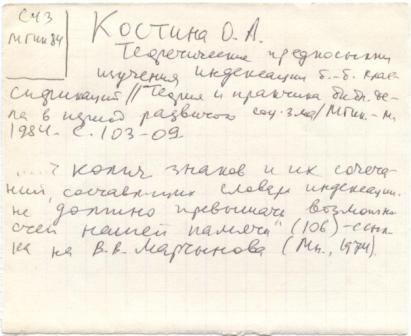 СЧЗ
МГИК 84
Костина О. А.
Теоретические предпосылки
изучения индексации б.-б. клас-
сификаций // Теория и практика библ. де-
ла в период развитого соц-зма / МГИК. - М,
1984. - С. 103-09.
"...? колич знаков и их сочета-
ний, составляющих словарь индексации.
не должно превышать возможно-
стей нашей памяти" (106) - ссыл-
ка на В. В. Мартынова (Мн., 1974).